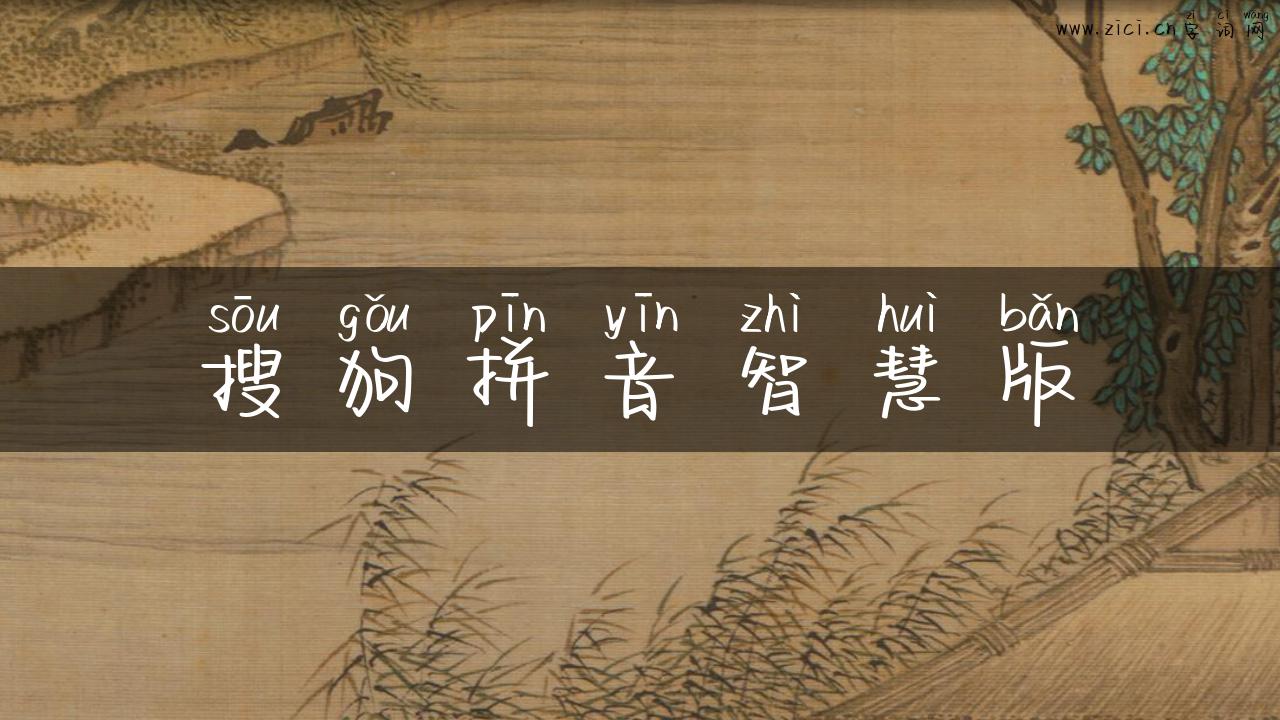 zì cí wǎng
www.zici.cn字词网
sōu gǒu pīn yīn zhì huì bǎn
搜狗拼音智慧版